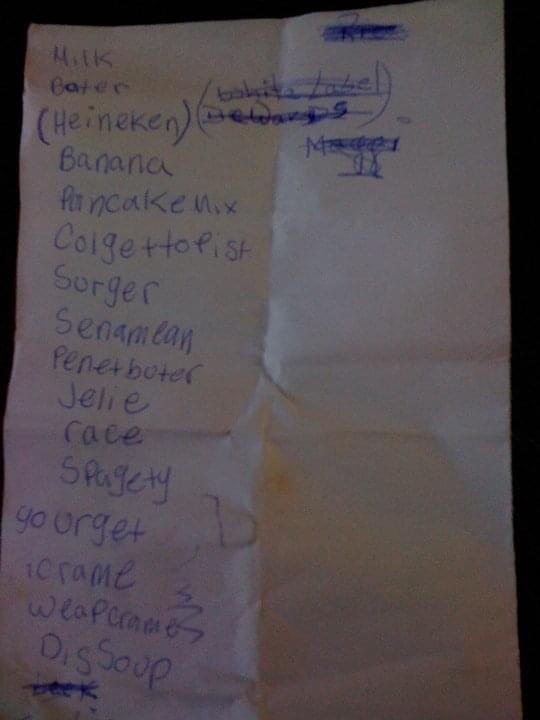 Milk
Boter
(Heineken) (White Label
Dewards)
Banana
Pancake Mix
Colgettopist
Surger
Senamean
Penetboter
Jelie
race
Spagety
yourget
icrame
Weapcrame
DisSoup